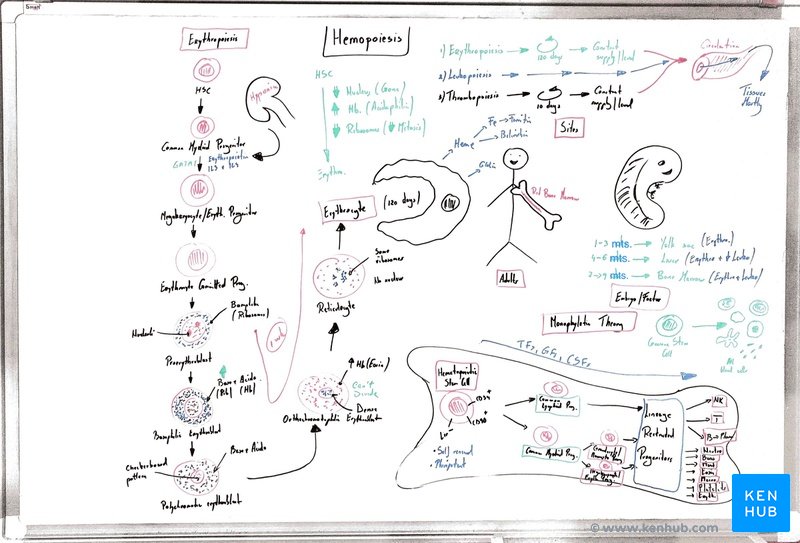 Erythropoiesis
HSC
Hypoxia
Common Myeloid Progenitor
GATA1
Erythropoietin
IL3 + IL9
Megakaryocyte/Eryth. Progenitor
Erythrocyte Committed Prog.
Basophilic
(Ribosomes)
Nucleoli
Proerythroblast
Base + Acido
(Rib) (Hb)
Basophilic erythroblast
Base + Acido
Checkerboard
pattern
Polychromatic erythroblast
1 wk
Hemopoiesis
HSC
Nucleus (Genes)
Hb. (Acidophilic)
Ribosomes ( Mitosis)
Eryth.
Erythrocyte (120 days)
Some
ribosomes
No nucleus
Reticulocyte
Hb (Eosin)
Can't
Divide
Dense
Orthochromatophilic Erythroblast
Heme
Fe
Ferritin
Bilirubin
Globin
1) Erythropoiesis
120 days
Constant
supply/level
2) Leukopoiesis
3) Thrombopoiesis
10 days
Constant
supply/level
Circulation
Tissues
Mostly
Sites
Red Bone Marrow
Adults
1-3 mts. Yolk sac (Erythro.)
4-6 mts. Liver (Erythro + Leuko)
7-9 mts. Bone Marrow (Erythro + Leuko)
Embryo/Foetus
Monophyletic Theory
Common Stem
Cell
All
blood cells
TFs, GFs, CSFs
Hematopoietic
Stem Cell
CD34+
CD90+
Lin-
• Self renewal
• Pluripotent
Common
Lymphoid Prog.
Common Myeloid Prog.
Granulocyte/
Monocyte Prog.
Megakaryocyte/
Eryth Prog.
Lineage
Restricted
Progenitors
NK
T
B Plasma
Neutro
Baso
Mast
Eosin
Mono
Platelets
Eryth
KEN
HUB
© www.kenhub.com